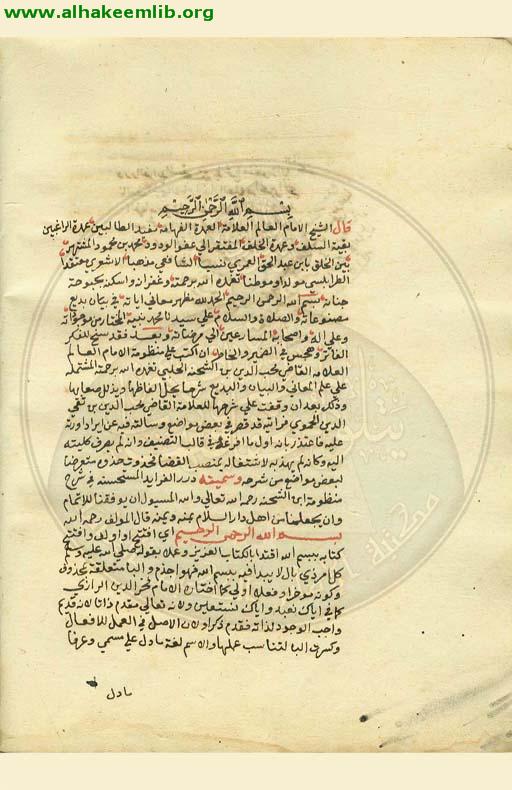 www.alhakeemlib.org
بسم الله الرحمن الرحيم
قال الشيخ الامام العالم العلامة العمدة الفهامة مفيد الطالبين عمدة الراغبين
بقية السلف وعمدة الخلف المفتقر الى عفو الودود محمد بن محمود المشتهر
بين الخلق بابن عبد الحق العمري نسبا الشافعي مذهبا الاشعري معتقدا
الطرابلسي مولدا وموطنا تغمده الله برحمته وغفرانه واسكنه بحبوحة
جنانه بسم الله الرحمن الرحيم الحمد لله مظهر معاني اياته في بيان بديع
مصنوعاته والصلاة والسلام على سيدنا محمد نبيه المختار من موجوداته
وعلى اله واصحابه المسارعين الى مرضاته وبعد فقد سنح للفكر
الفاتر وهجس في الضمير والخاطر ان اكتب على منظومة الامام العالم
العلامة القاضي محب الدين بن الشحنة الحلبي تغمده الله برحمته المشتملة
على علم المعاني والبيان والبديع شرحا يحل الفاظها ويذلل صعابها
وذلك بعد ان وقفت على شرحها للعلامة القاضي محب الدين بن تقي
الدين الحموي فرايته قد قصر في بعض مواضع وسالته فيه عن ايراد اورته
عليه فاعتذر بانه اول ما افرغه في قالب التصنيف وانه لم يصرف كليته
اليه وكانه لم يهذبه لاشتغاله بمنصب القضا متعرضا
لبعض مواضع من شرحه وسميته درر الفرايد المستحسنة في شرح
منظومة ابن الشحنة رحمه الله تعالى والله المسؤول ان يوفقنا للاتمام
وان يجعلنا من اهل دار السلام بمنه ويمنه قال المولف رحمه الله
بسم الله الرحمن الرحيم اي افتتح او اولف وافتتح
كتابه ببسم الله اقتدا بالكتاب العزيز وعملا بقوله صلى الله عليه وسلم
كل امر ذي بال لا يبدا فيه ببسم الله فهو اجذم والبا متعلقة بمحذوف
وكونه موخرا وفعلا اولى كما اختاره الامام فخر الدين الرازي
كما في اياك نعبد واياك نستعين ولانه تعالى مقدم ذاتا لانه قديم
واجب الوجود لذاته فقدم ذكرا ولان الاصل في العمل للافعال
وكسرت البا لتناسب عملها والاسم لغة ما دل على مسمى وعرفا
ما دل